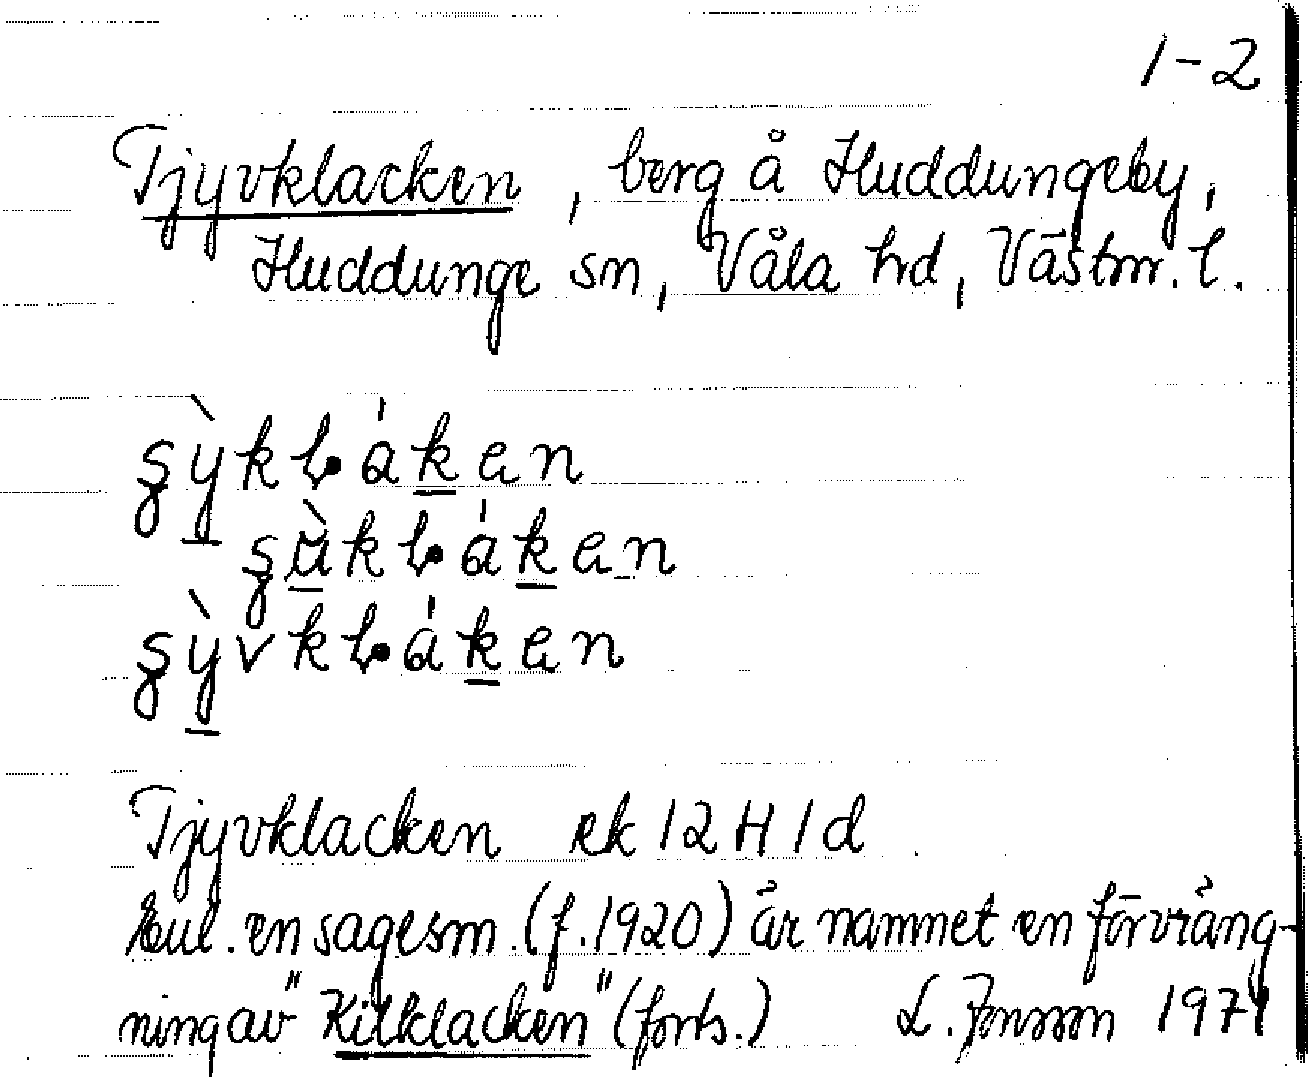 1-2
Tjyvklacken, berg å Huddungeby,
Huddunge sn, Våla hd, Västm. l.
Tjyvklacken ek 12 H 1 d
Enl. en sagesm. (f. 1920) är namnet en förvräng-
ning av "Kilklacken" (forts.) L. Jonsson 1971